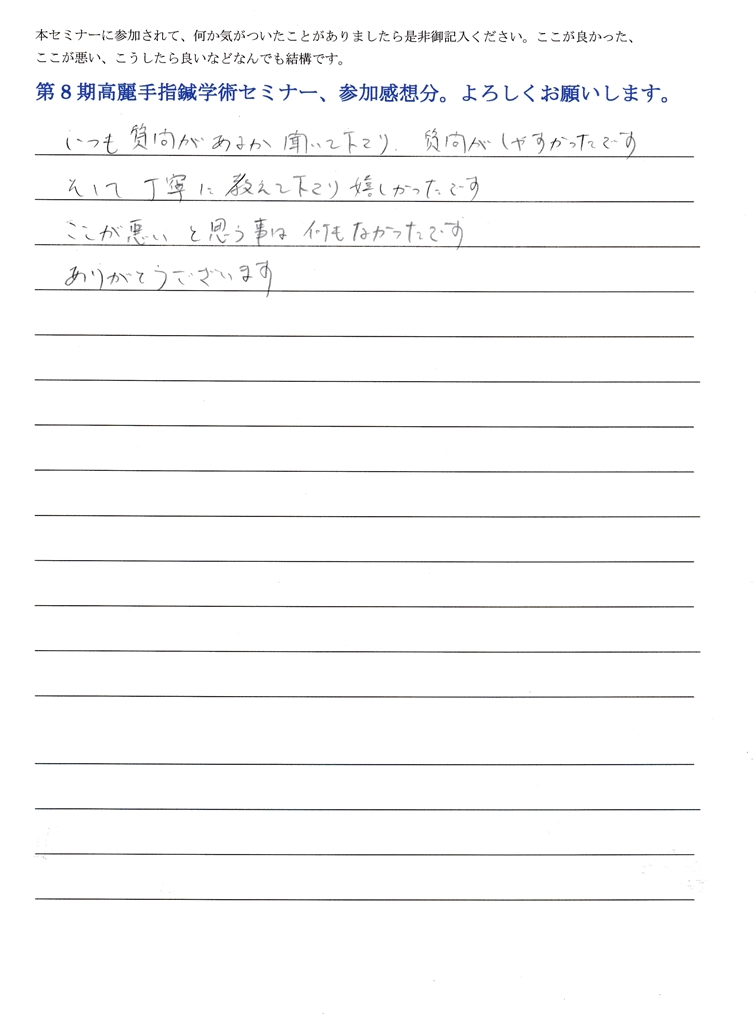 本セミナーに参加されて、何か気がついたことがありましたら是非御記入ください。ここが良かった、
ここが悪い、こうしたら良いなどなんでも結構です。
第8期高麗手指鍼学術セミナー、参加感想分。よろしくお願いします。
いつも質問があるか聞いて下さり、質問がしやすかったです
そして丁寧に教えて下さり嬉しかったです
ここが悪いと思う事は何もなかったです
ありがとうございます